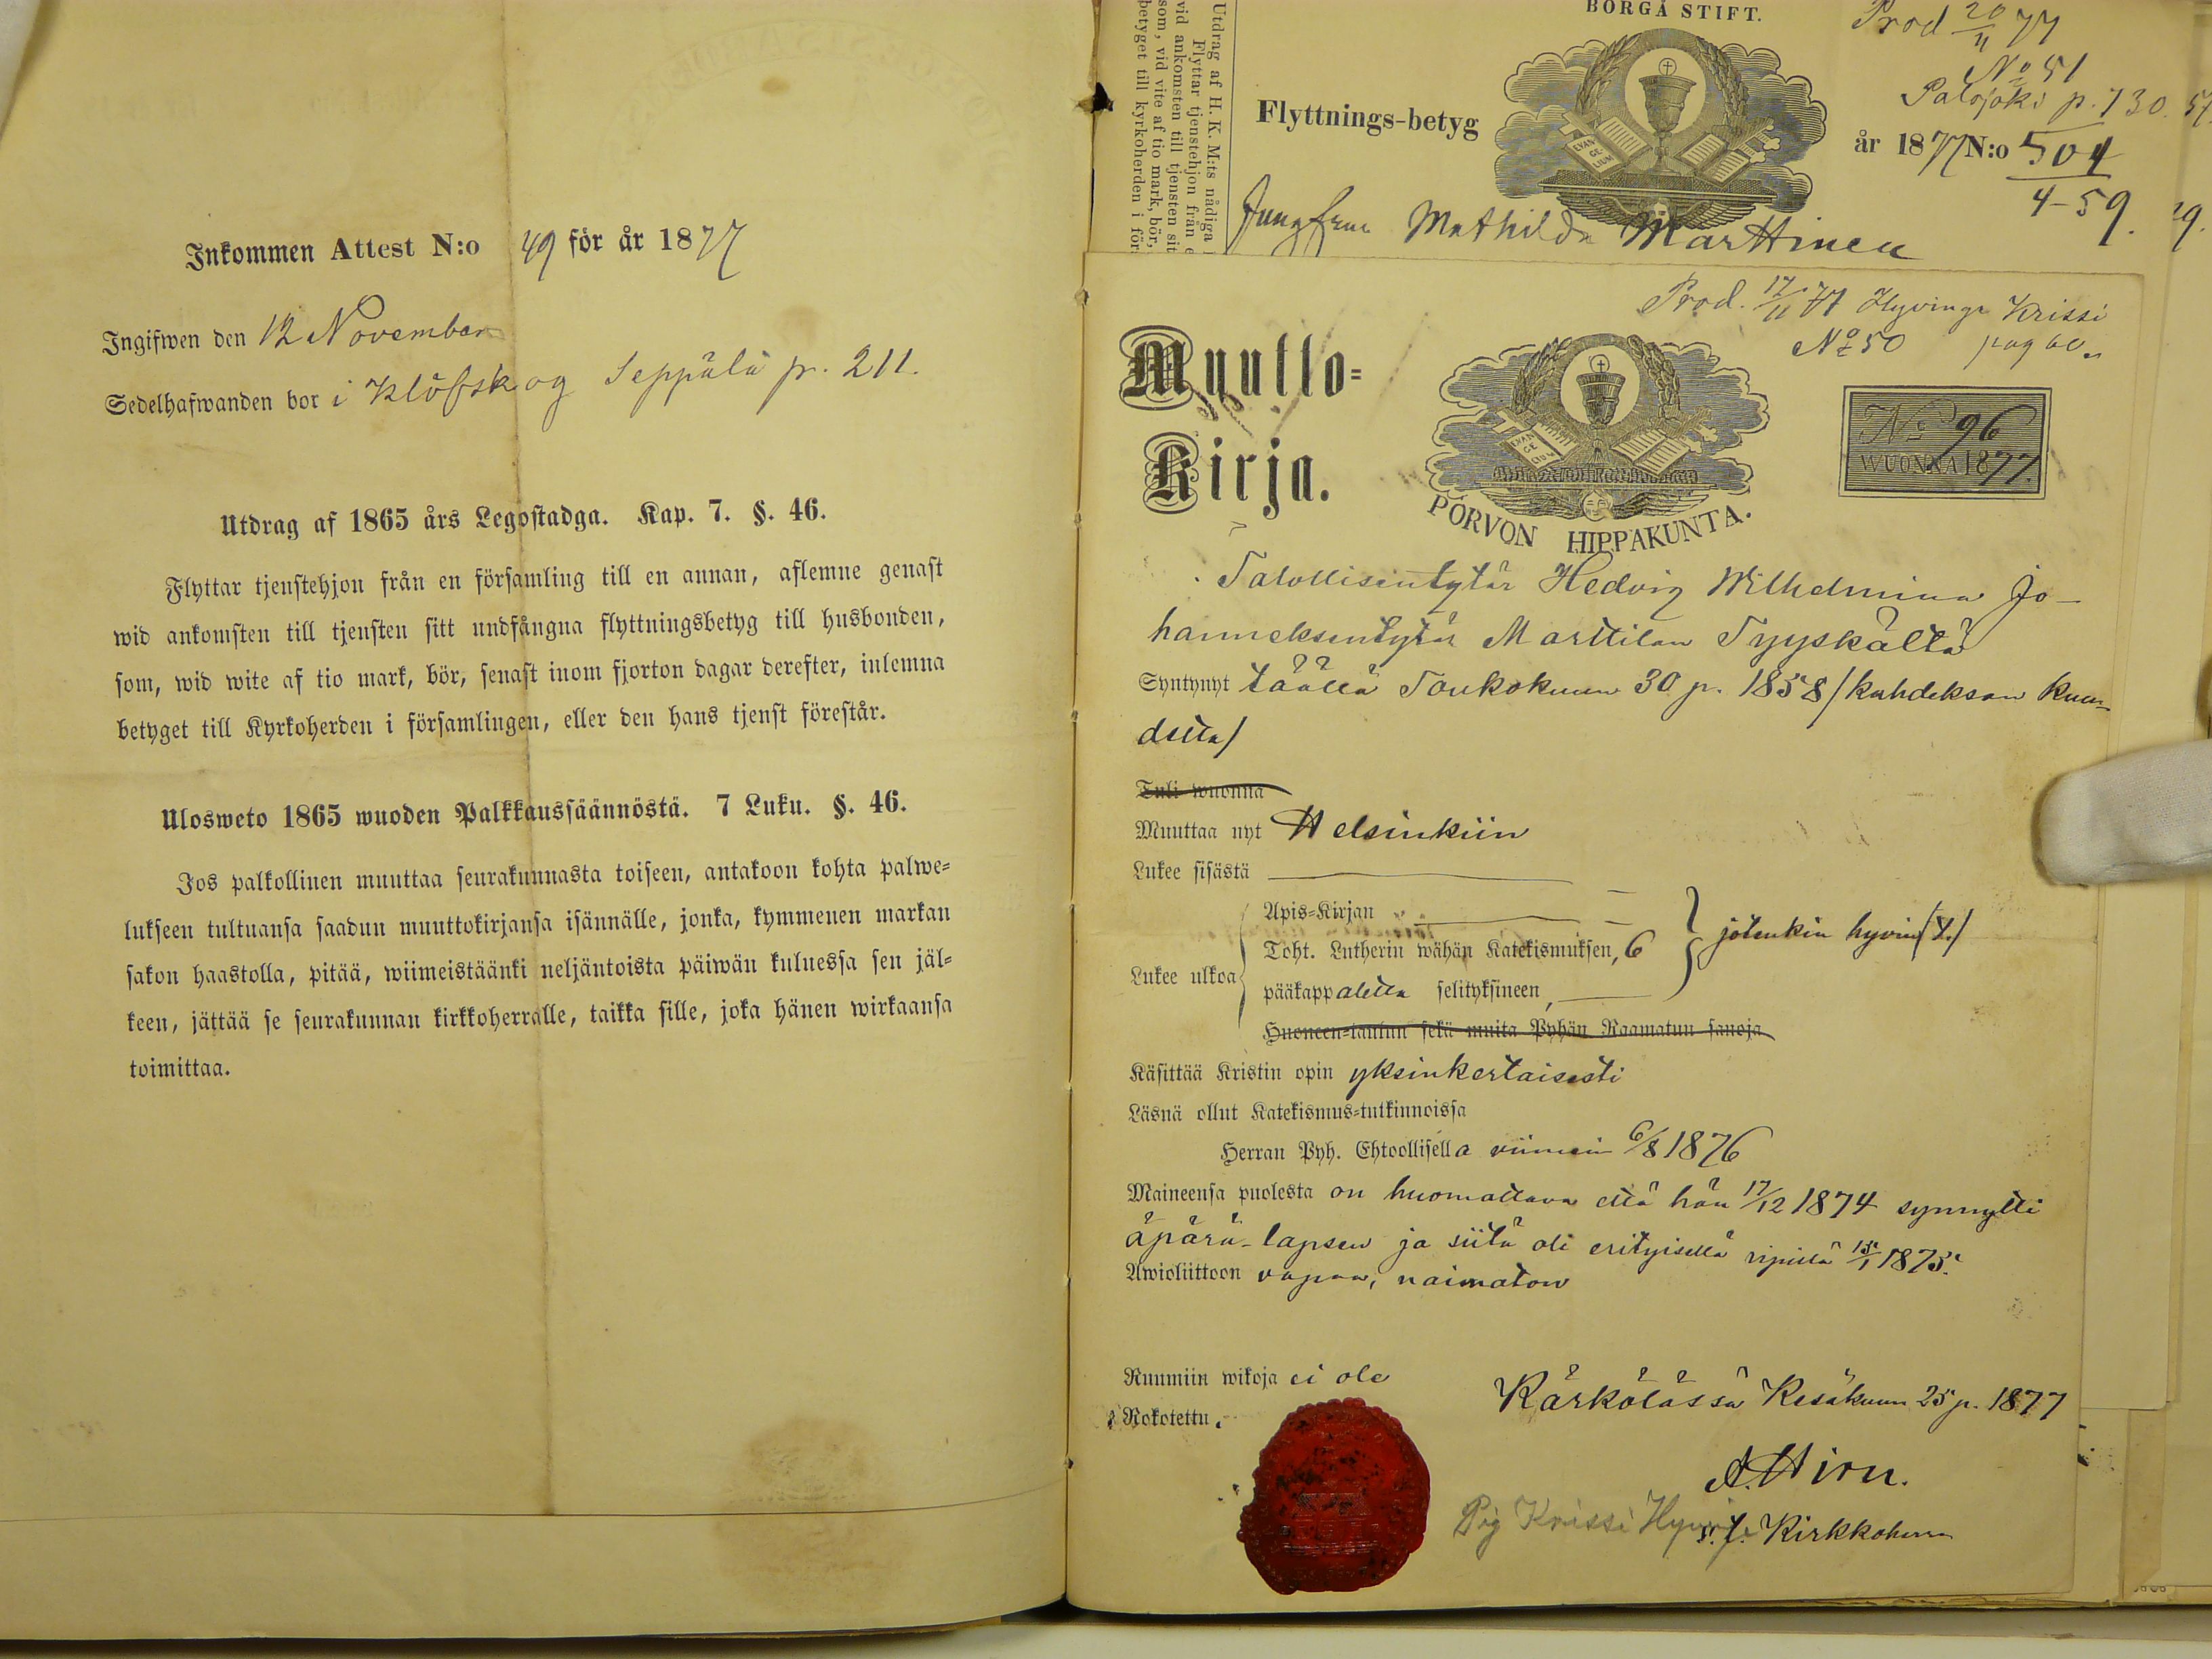 Inkommen Attest N:o 49 för år 1877
Ingifwen den 12 November
Sedelhafwanden bor i Klöfskog Seppälä p. 211.
Utdrag af 1865 års Legostadga. Kap. 7. §. 46.
Flyttar tjenstehjon från en församling till en annan, aflemne genast
wid ankomsten till tjensten sitt undfångna flyttningsbetyg till husbonden,
som, wid wite af tio mark, bör, senast inom fjorton dagar derefter, inlemna
betyget till Kyrkoherden i församlingen, eller den hans tjenst förestår.
Ulosweto 1865 wuoden Palkkaussäännöstä. 7 Luku. §. 46.
Jos palkollinen muuttaa seurakunnasta toiseen, antakoon kohta palwe-
lukseen tultuansa saadun muuttokirjansa isännälle, jonka, kymmenen markan
sakon haastolla, pitää, wiimeistäänki neljäntoista päiwän kuluessa sen jäl-
keen, jättää se seurakunnan kirkkoherralle, taikka sille, joka hänen wirkaansa
toimittaa.
Utdrag af H. K. M:ts nådiga
Flyttar tjenstehjon från e
vid ankomsten till tjensten sit
som, vid vite af tio mark, bör,
betyget till kyrkoherden i för
BORGÅ STIFT.
Prod 20/11 77
No 51
Palojoki p. 730.
Flyttnings-betyg
EVAN GE- LIUM
år 1877 N:o 504
4-59.
Jungfrun Mathilda Marttinen
Prod. 17/11 77 Hyvinge Krissi
No 50 pag 60.
Muutto-
Kirja.
EVAN GE LIUM
PORVON HIPPAKUNTA.
No 96
WUONNA 1877.
Talollisentytär Hedvig Wilhelmina Jo-
hanneksentytär Marttilan Tyyskältä
Syntynyt täällä Toukokuun 30 p. 1858 /kahdeksan kuu-
detta/
Tuli wuonna
Muuttaa nyt Helsinkiin
Lukee sisästä
Apis-Kirjan
Toht. Lutherin wähän Katekismuksen, 6
Lukee ulkoa
pääkappaletta selityksineen,
jotenkin hyvin
Huoneen-taulun sekä muita Pyhän Raamatun sanoja
Käsittää Kristin opin yksinkertaisesti
Läsnä ollut Katekismus-tutkinnoissa
Herran Pyh. Ehtoollisella viimein 6/8 1876
Maineensa puolesta on huomattava että hän 17/12 1874 synnytti
äpärä-lapsen ja siitä oli erityisellä ripillä 15/1 1875.
Awioliittoon vapaa, naimaton
Ruumiin wikoja ei ole
Rokotettu.
Kärkölässä Kesäkuun 25 p. 1877
A. Hirn.
Pig Krissi Hyvinge
v. t. Kirkkoherra